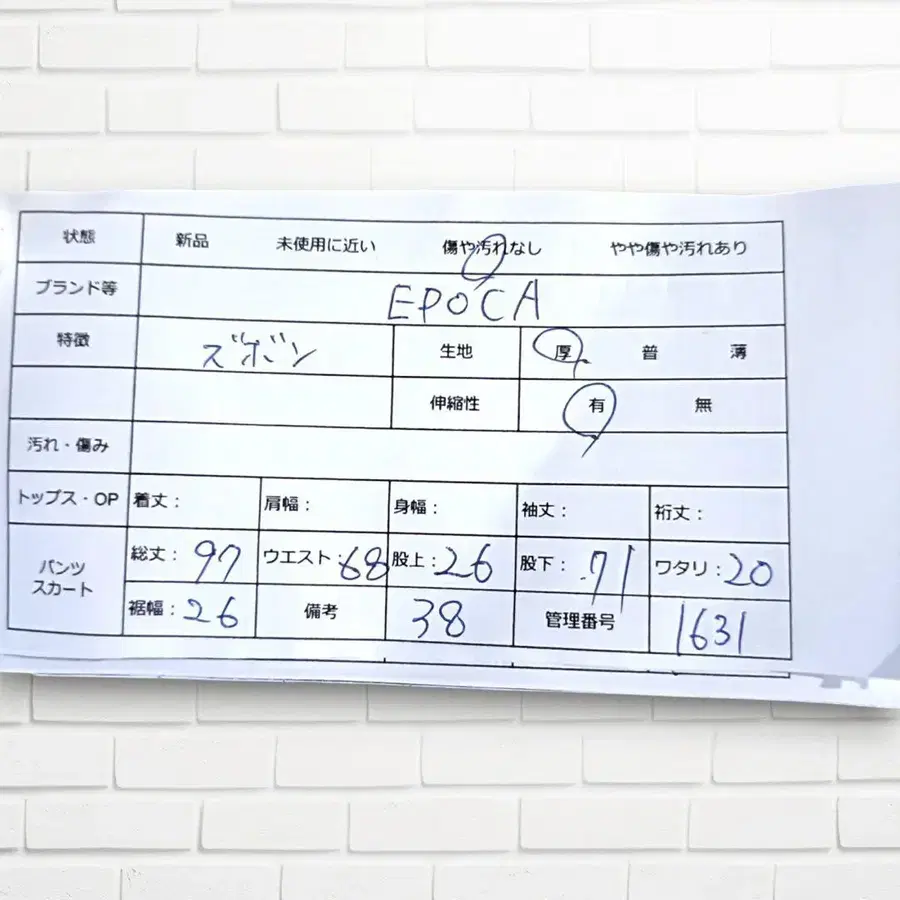 状態 新品 未使用に近い 傷や汚れなし やや傷や汚れあり
ブランド等 EPOCA
特徴 ズボン 生地 厚 普 薄
伸縮性 有 無
汚れ・傷み
トップス・OP 着丈： 肩幅： 身幅： 袖丈： 裄丈：
パンツ スカート 総丈：97 ウエスト：68 股上：26 股下：71 ワタリ：20
裾幅：26 備考 38 管理番号 1631